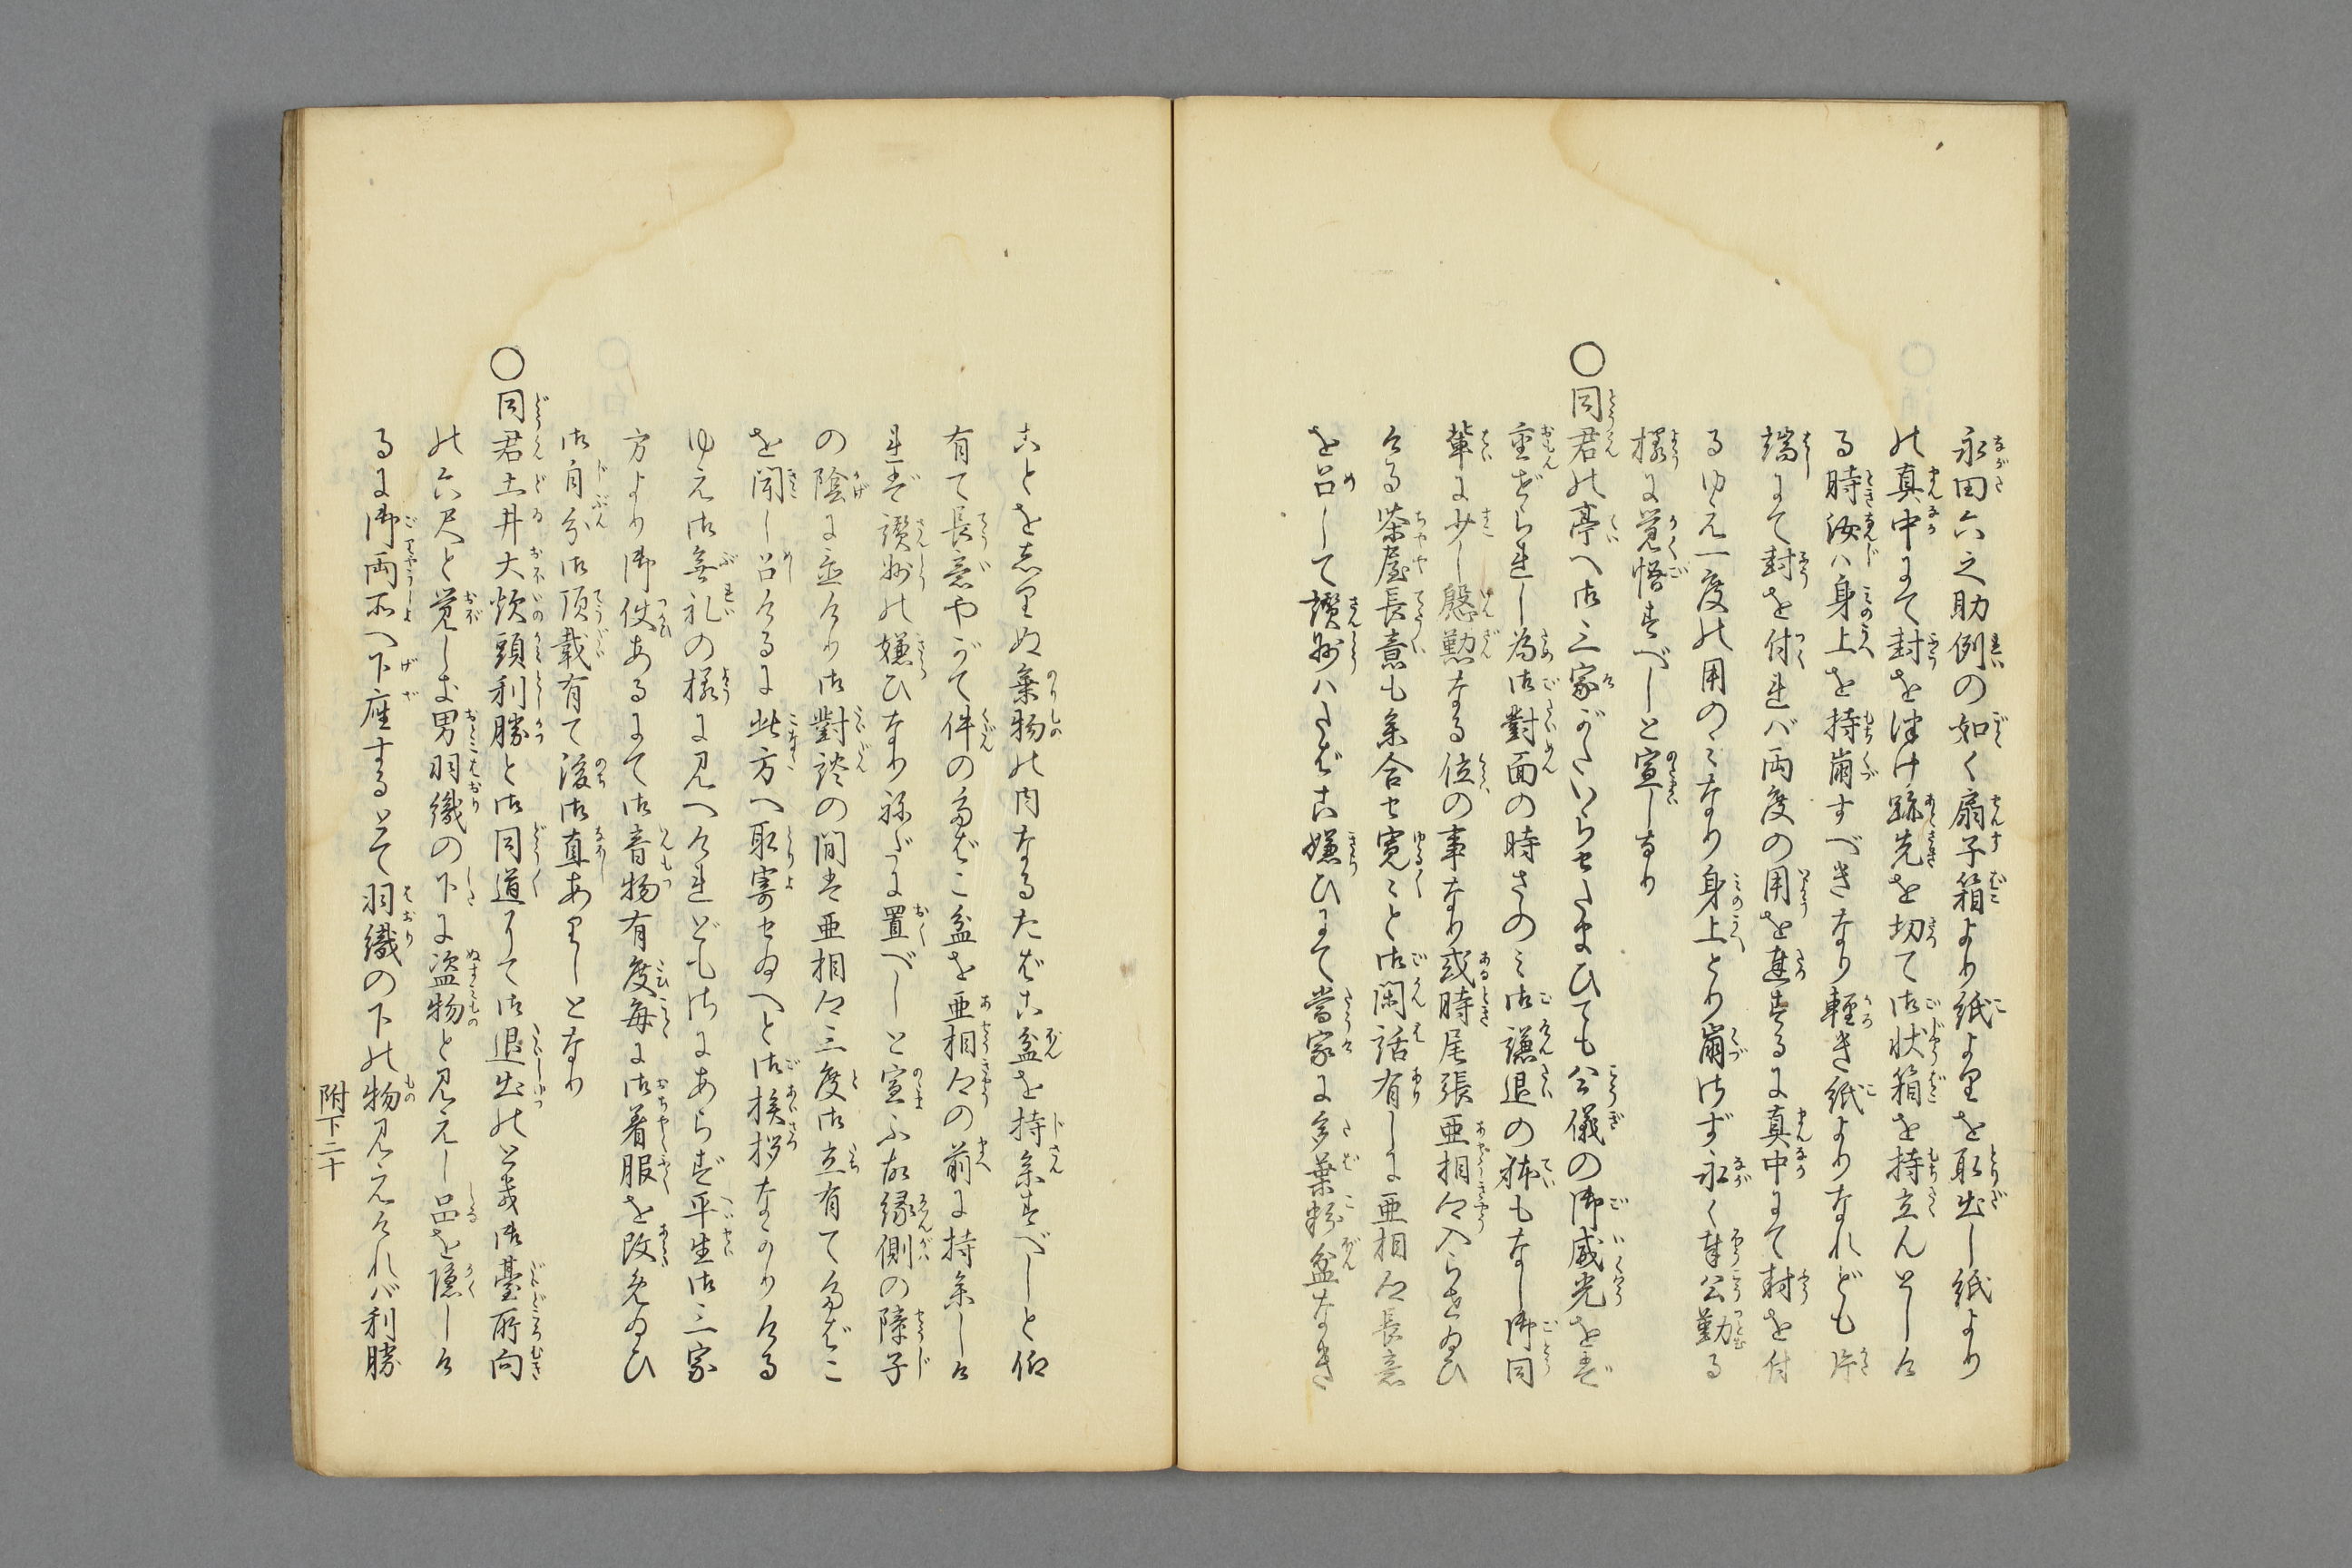 永田六之助例の如く扇子箱より紙よりを取出し紙より
の真中にて封を津け跡先を切て御状箱を持立んとしけ
る時汝ハ身上を持崩すべきなり軽き紙よりなれども片
端にて封を付れバ両度の用を達するに真中にて封を付
るゆえ一度の用のミなり身上とり崩さず永く奉公勤る
様に覚悟すべしと宣しなり
○同君の亭へ御三家がたいらせたまひても公儀の御威光をバ
重ぜられし為御對面の時さのミ御謙退の体もなし御同
輩に少し慇懃なる位の事なり或時尾張亜相公入らせ給ひ
ける茶屋長意も参合せ寛々と御閑話有しに亜相公長意
を召して讃州ハたばこ嫌ひにて當家に多葉粉盆なき
ことを志りぬ乗物の内なるたばこ盆を持参すべしと仰
有て長意やがて件のたばこ盆を亜相公の前に持参しけ
れば讃州の嫌ひなり祢だに置べしと宣ふ故縁側の障子
の陰に立けり御對談の間に亜相公三度御立有てたばこ
を聞し召けるに此方へ取寄せ給へと御挨拶なかりける
ゆえ御無礼の様に見へけれども左にあらず平生御三家
方より御使あるにて御音物有度毎に御着服を改め給ひ
御自分御頂載有て後御直ありしとなり
○同君土井大炊頭利勝と御同道にて御退出のとき御臺所向
の六尺と覚しき男羽織の下に盗物と見えし品を隠しけ
るに御両所へ下座するとて羽織の下の物見えけれバ利勝
附下二十